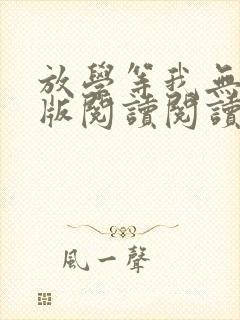 放學等我無
版閱讀閱讀
風一聲